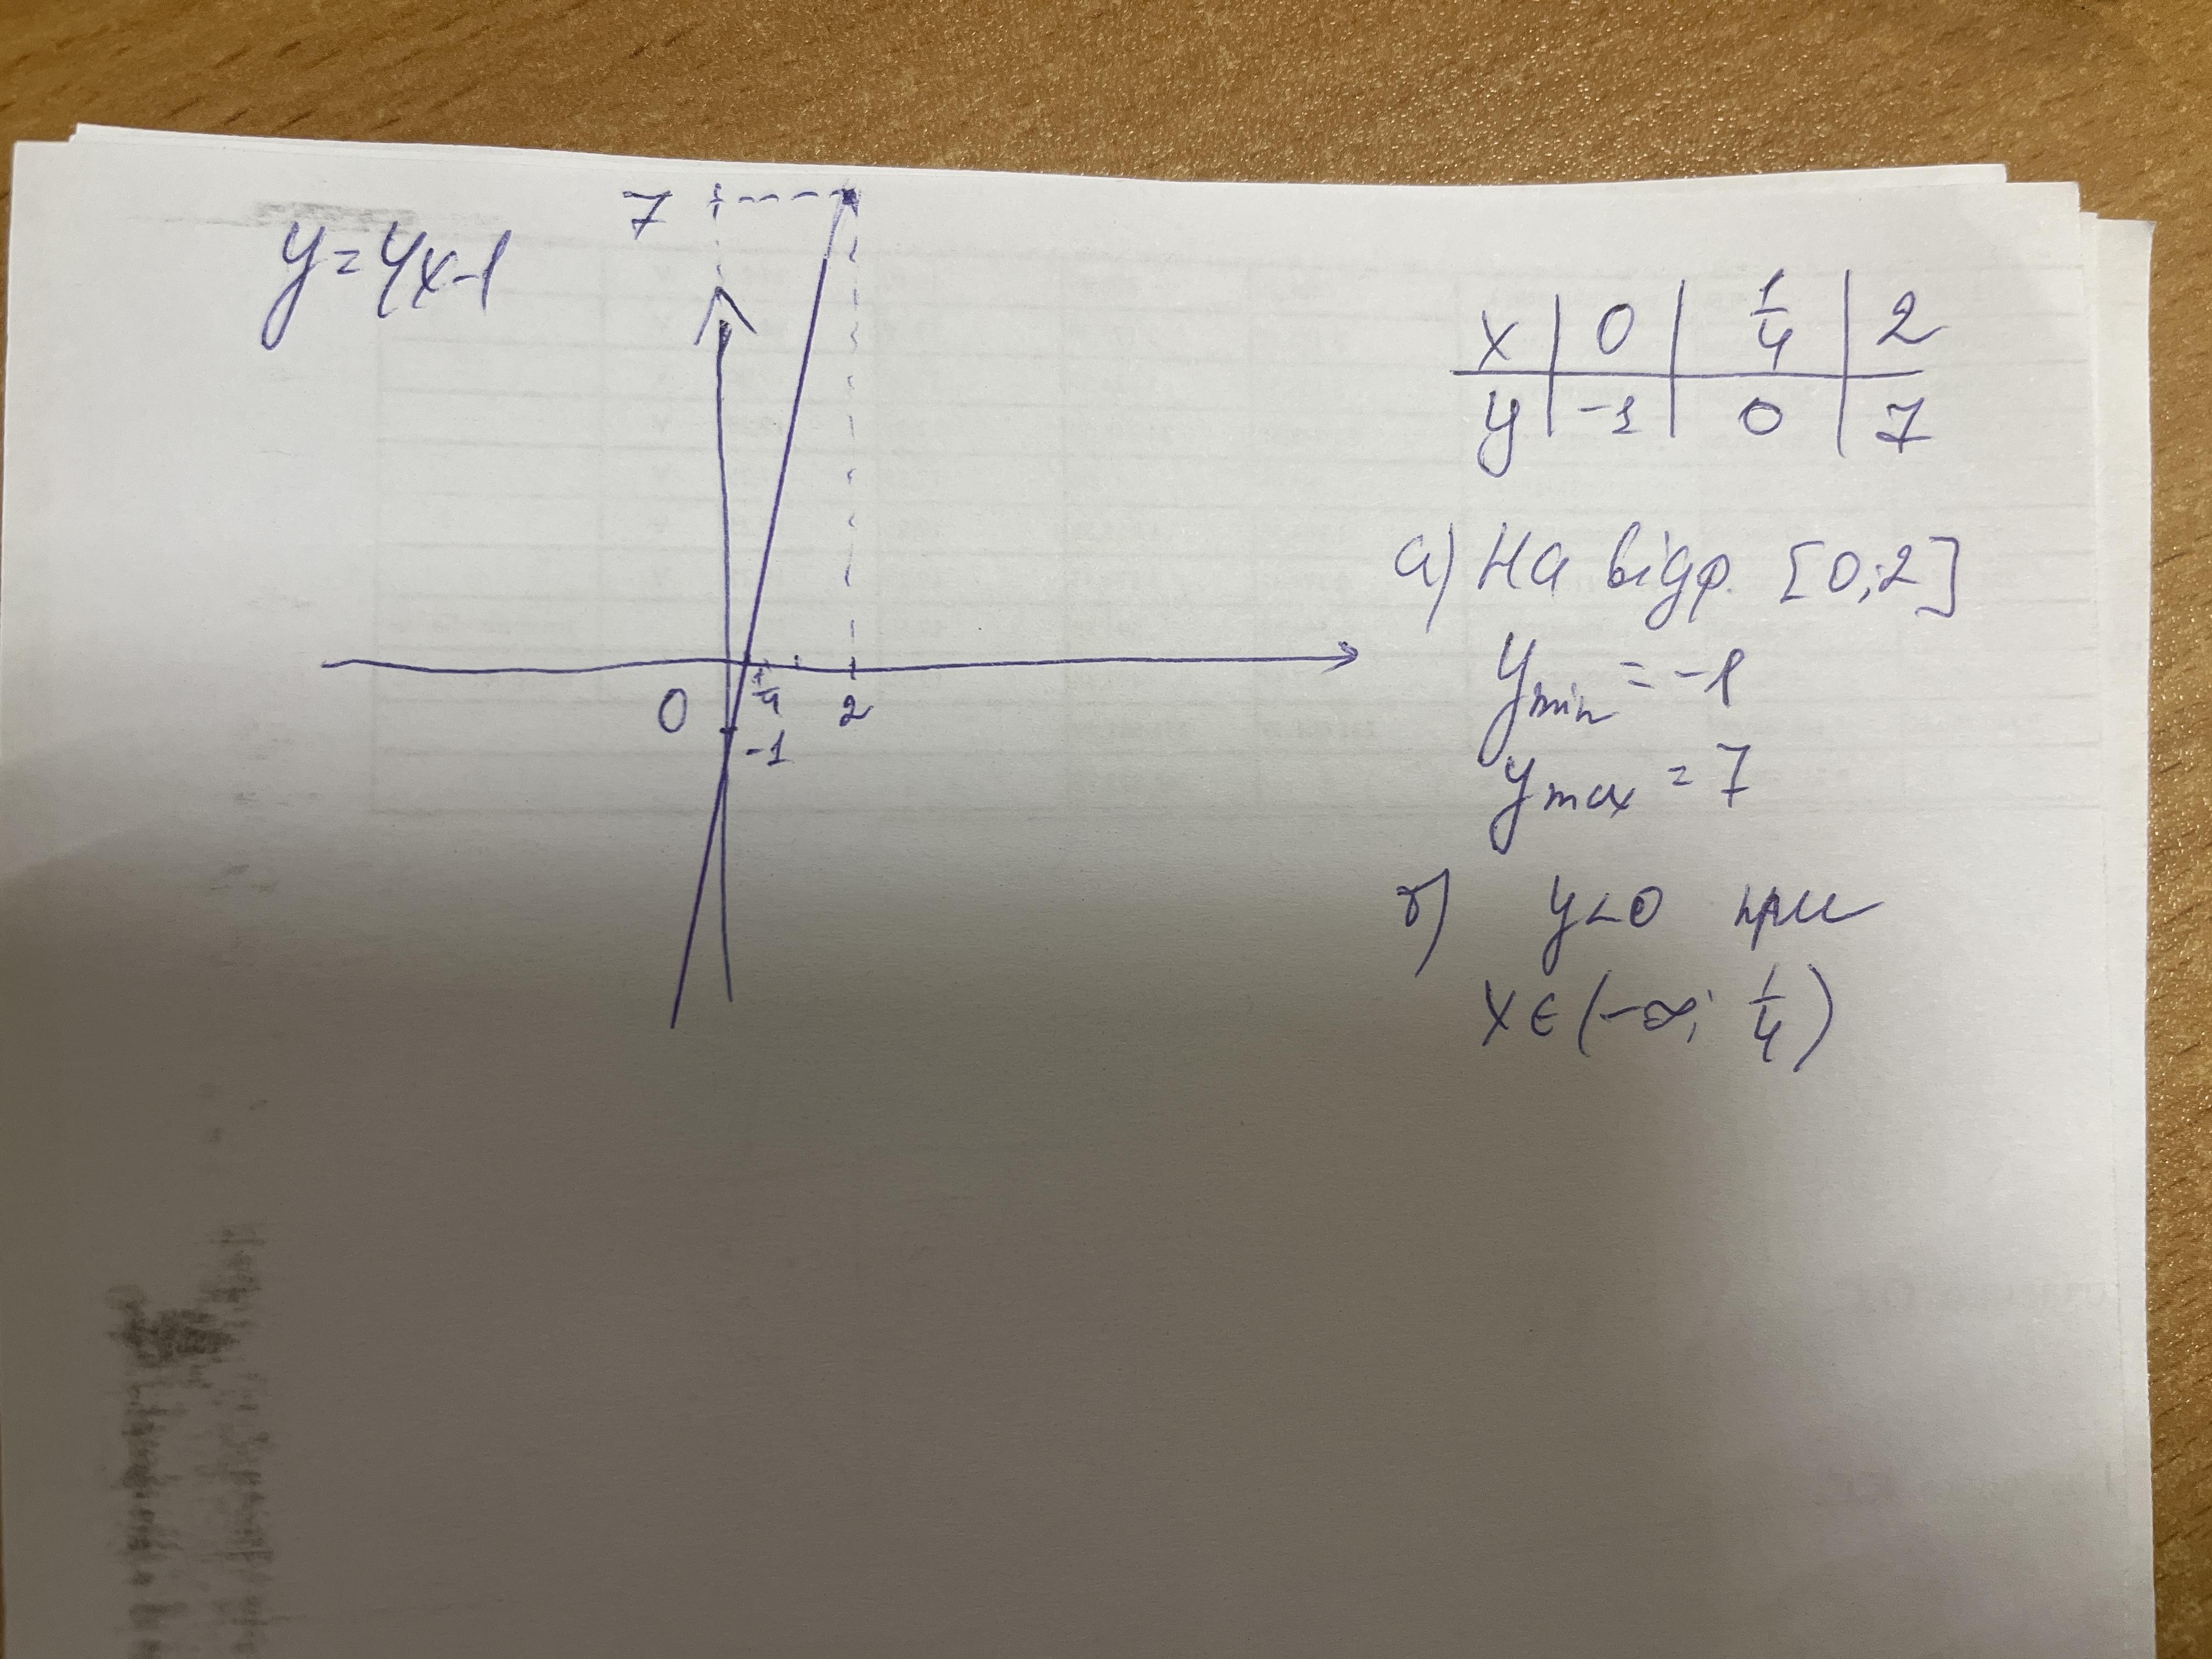 y=4x-1
7
0
1/4
2
-1
x | 0 | 1/4 | 2
y | -1 | 0 | 7
а) На відр. [0;2]
y min = -1
y max = 7
б) y<0 при
x∈(-∞; 1/4)